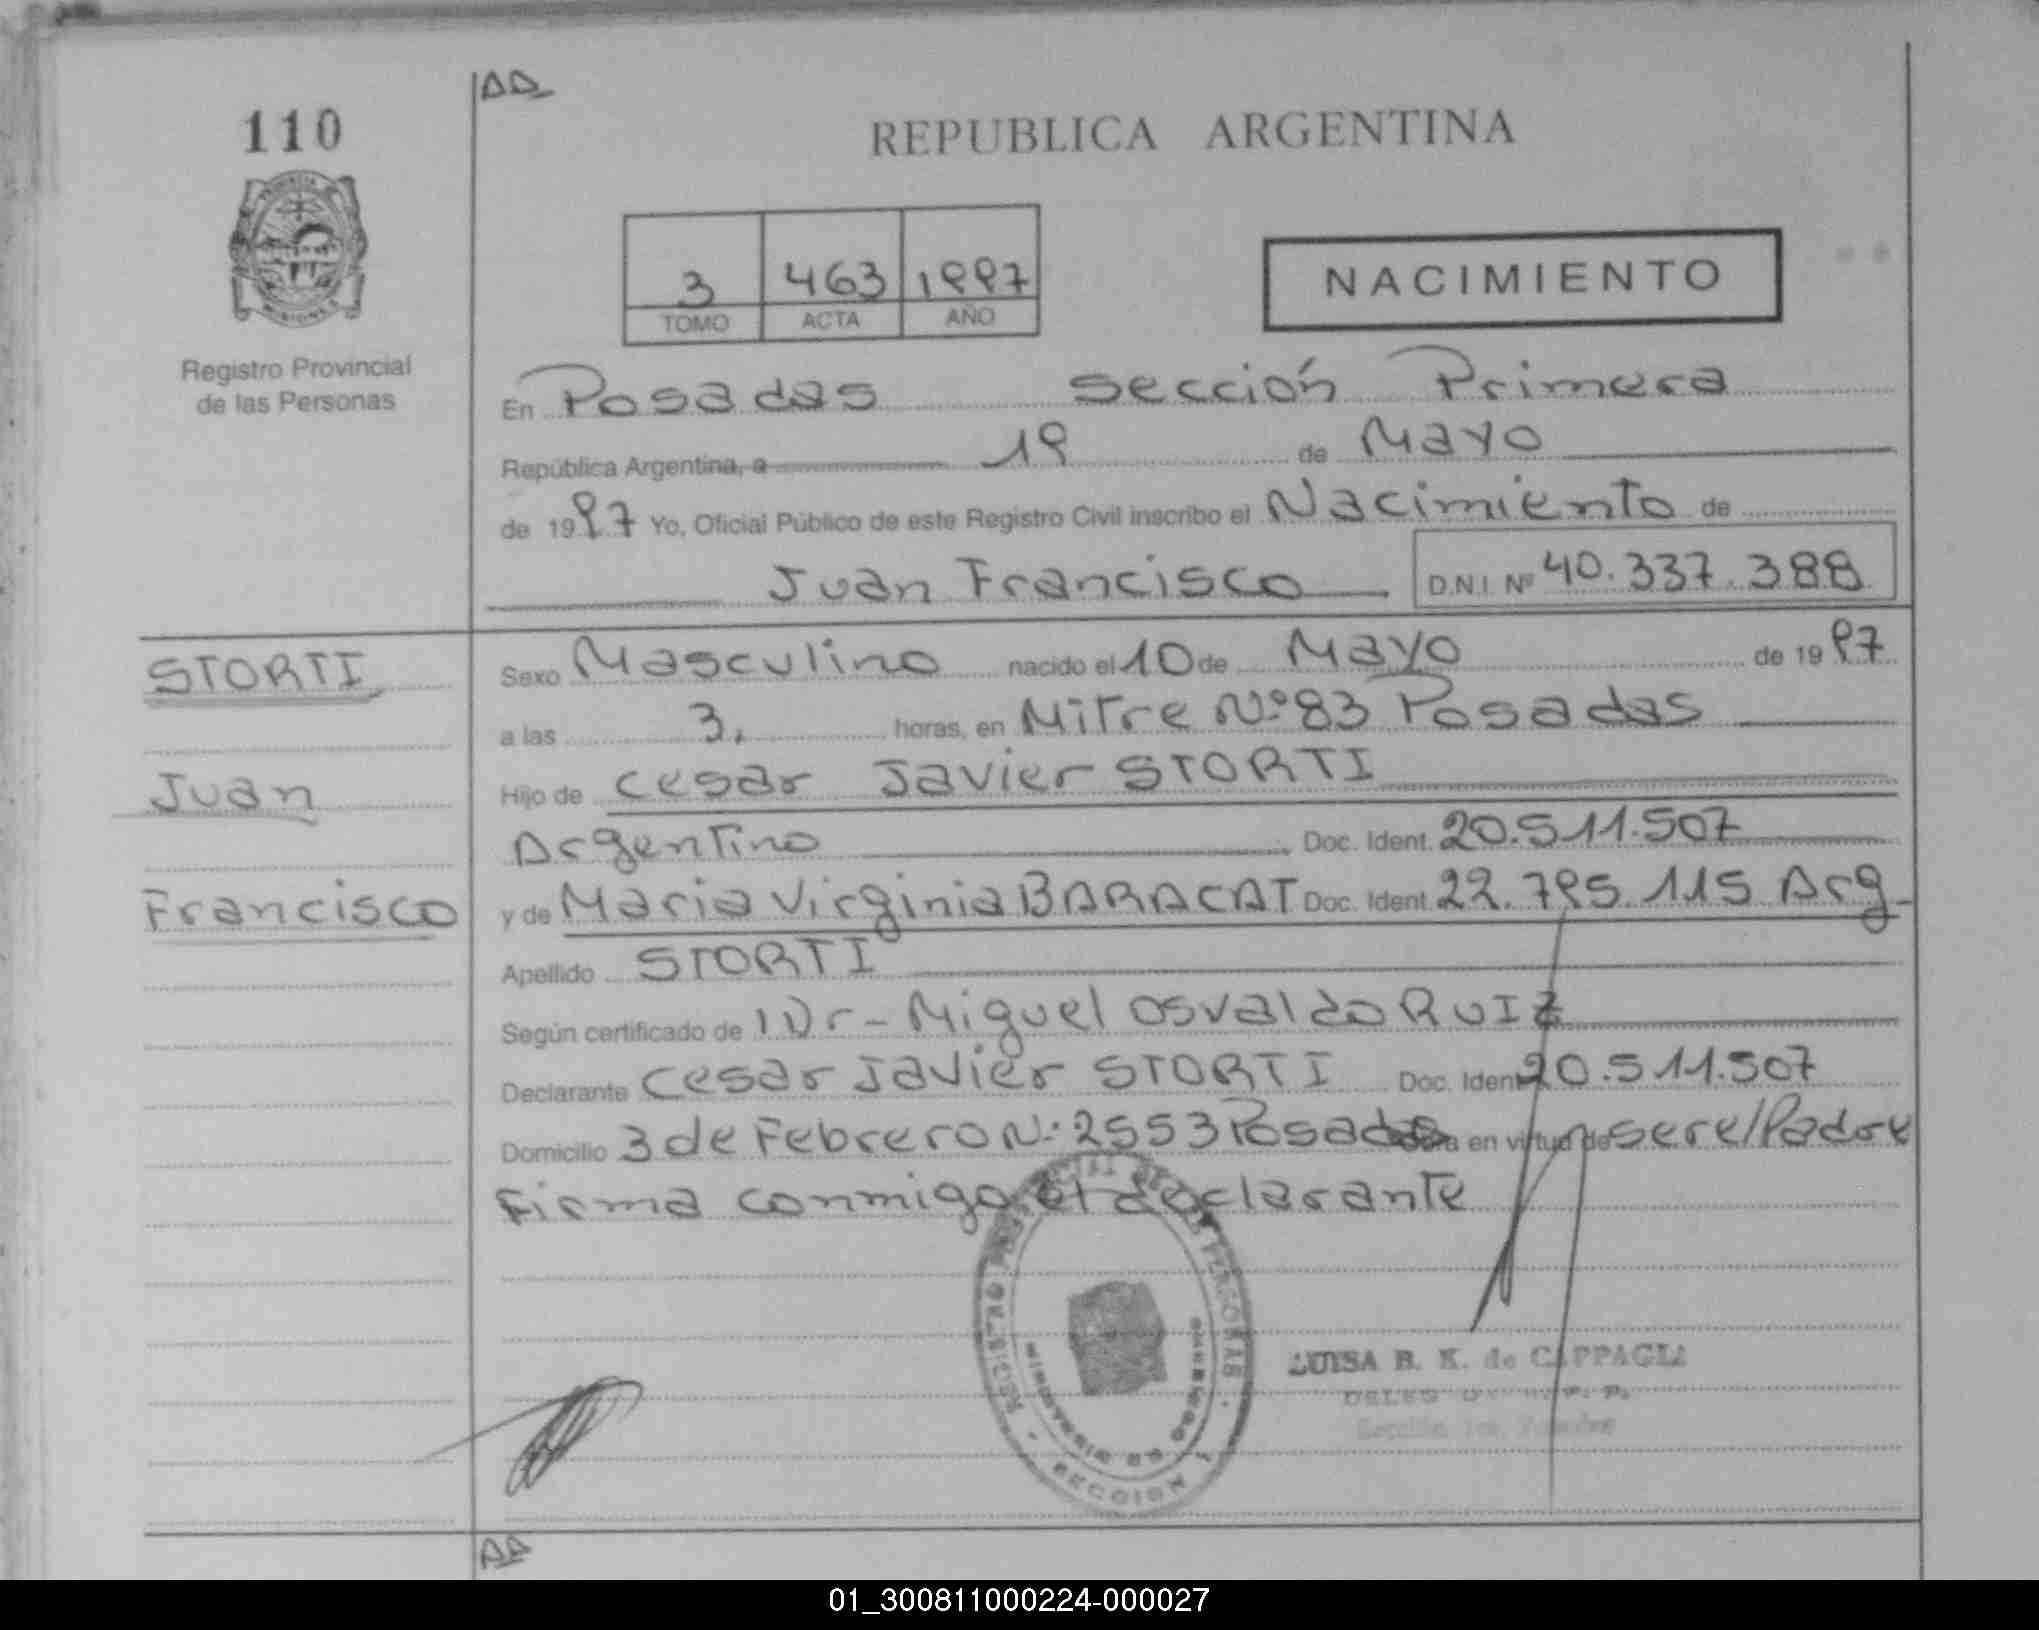 AA
110
REPUBLICA ARGENTINA
3 463 1997
TOMO ACTA AÑO
NACIMIENTO
Registro Provincial
de las Personas
En Posadas Sección Primera
República Argentina, a 19 de Mayo
de 1997 Yo, Oficial Público de este Registro Civil inscribo el Nacimiento de
Juan Francisco D.N.I. Nº 40.337.388
STORTI
Juan
Francisco
Sexo Masculino nacido el 10 de Mayo de 1997
a las 3. horas, en Mitre Nº 83 Posadas
Hijo de Cesar Javier STORTI
Argentino Doc. Ident. 20.511.507
y de Maria Virginia BARACAT Doc. Ident. 22.795.115 Arg
Apellido STORTI
Según certificado de Dr- Miguel Osvaldo RUIZ
Declarante Cesar Javier STORTI Doc. Ident 20.511.507
Domicilio 3 de Febrero N: 2553 Posadas en virtud de ser el Padre
Firma conmigo el declarante
SECCION 1
LUISA B. K. de CAPPAGLI
AA
01_300811000224-000027